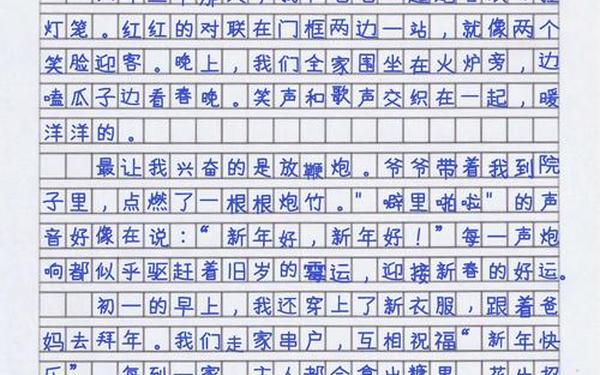 灯笼。红红的对联在门框两边一站，就像两个
笑脸迎客。晚上，我们全家围坐在火炉旁，边
嗑瓜子边看春晚。笑声和歌声交织在一起，暖
洋洋的。
最让我兴奋的是放鞭炮。爷爷带着我到院
子里，点燃了一根根炮竹。"噼里啪啦"的声
音好像在说："新年好，新年好！"每一声炮
响都似乎驱赶着旧岁的霉运，迎接新春的好运。
初一的早上，我还穿上了新衣服，跟着爸
妈去拜年。我们走家串户，互相祝福"新年快
乐"。每到一家，主人都会拿出糖果、花生招